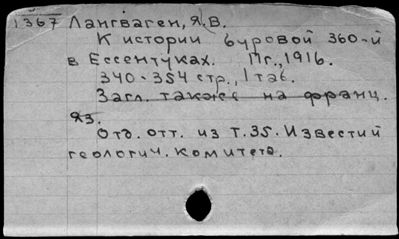 1367 Лангваген, Я.В.
К истории буровой 360-й
в Ессентуках. Пг., 1916.
340-354 стр., 1 таб.
Загл. также на франц.
яз.
Отд. отт. из Т.35. Известий
геологич. комитета.